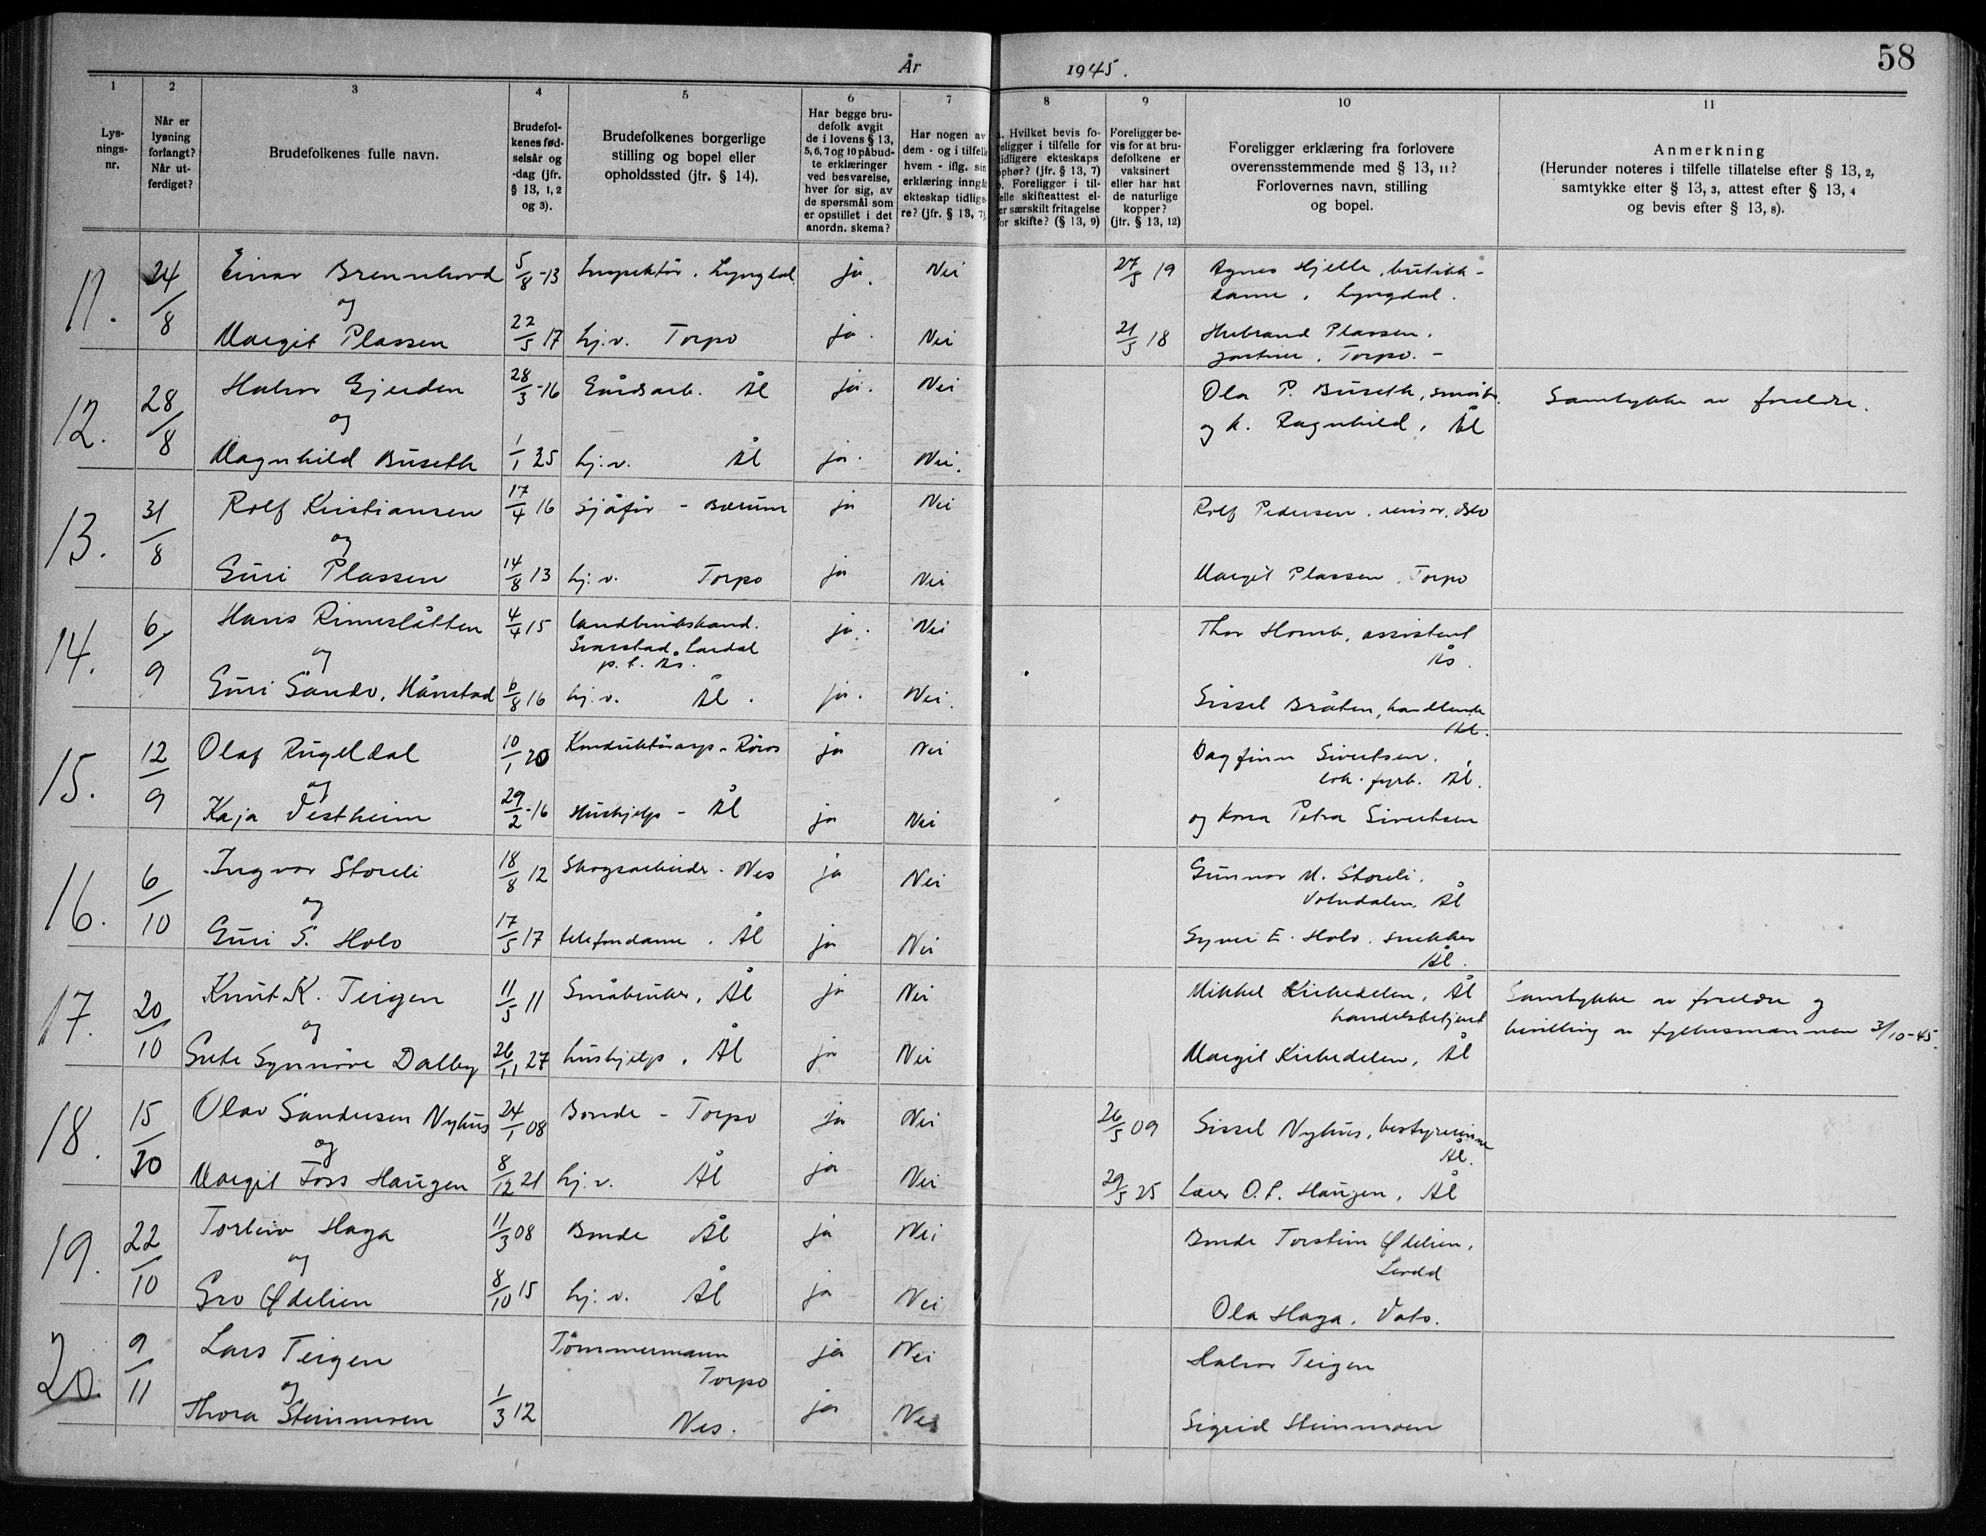 År 1945.
58
1 2 3 4 5 6 7 8 9 10 11
Lys-
nings-
nr.
Når er
lysning
forlangt?
Når ut-
ferdiget?
Brudefolkenes fulle navn.
Brudefol-
kenes fød-
selsår og
-dag (jfr.
§ 13, 1, 2
og 3).
Brudefolkenes borgerlige
stilling og bopel eller
opholdssted (jfr. § 14).
Har begge bru-
defolk avgit
de i lovens § 13,
5, 6, 7 og 10 påbud-
te erklæringer
ved besvarelse,
hver for sig, av
de spørsmål som
er opstillet i det
anordn. skema?
Har nogen av
dem - og i tilfelle
hvem - iflg. sin
erklæring inngått
ekteskap tidlige-
re? (jfr. § 13, 7).
a. Hvilket bevis fo-
religger i tilfelle for
tidligere ekteskaps
ophør? (jfr. § 13, 7)
b. Foreligger i til-
felle skifteattest el-
ler særskilt fritagelse
for skifte? (§ 13, 9)
Foreligger be-
vis for at bru-
defolkene er
vaksinert
eller har hat
de naturlige
kopper?
(jfr. § 13, 12)
Foreligger erklæring fra forlovere
overensstemmende med § 13, 11?
Forlovernes navn, stilling
og bopel.
Anmerkning
(Herunder noteres i tilfelle tillatelse efter § 13, 2,
samtykke efter § 13, 3, attest efter § 13, 4
og bevis efter § 13, 8).
11. 24/8 Einar Brennhovd 5/8-13 Inspektør. Lyngdal ja. Nei 27/5 19 Agnes Hjelle, butikk-
dame, Lyngdal.
og
Margit Plassen 22/5 17 hj.v. Torpo ja. Nei 21/5 18 Herbrand Plassen,
gartner, Torpo. -
12. 28/8 Halvor Gjerden 28/3-16 Gårdsarb. Ål ja. Nei Ola P. Buseth, småbr. Samtykke av foreldre.
og
og k. Ragnhild, Ål
Magnhild Buseth 1/1 25 hj.v. Ål ja. Nei.
13. 31/8 Rolf Kristiansen 17/4 16 Sjåfør - Bærum ja Nei Rolf Pedersen, Oslo
og
Guri Plassen 14/8 13 hj.v. Torpo ja Nei Margit Plassen, Torpo
14. 6/9 Hans Rimeslåtten 4/4 15 landbrukskand. ja. Nei Thor Homb, assistent
Svarstad, Lardal
p.t. Ås.
Ås.
og
Guri Sandv. Hånstad 6/8 16 hj.v. Ål. ja. Nei. Sissel Bråten, handlende
Ål.
15. 12/9 Olaf Rugeldal 10/1 20 Konduktørasp - Røros ja Nei Dagfinn Sivertsen,
lok. fyrb. Ål.
og
Kaja Vestheim 29/2-16 Hushjelp - Ål ja Nei og kona Petra Sivertsen
16. 6/10 Ingvar Storeli 18/8 12 Skogsarbeider - Nes ja Nei Gunnar M. Storeli,
Votndalen, Ål
og
Guri S. Holo 17/5 17 telefondame. Ål ja Nei Syver E. Holo, snekker
Ål.
17. 20/10 Knut K. Teigen 11/5 11 Småbruker, Ål ja Nei Mikkel Kirkedelen, Ål Samtykke av foreldre og
handelsbetjent bevilling av fylkesmannen 3/10-45.
og
Gute Synnøve Dalby 26/11 27 hushjelp, Ål ja Nei Margit Kirkedelen, Ål
18. 15/10 Olav Sandersen Nyhus 24/1 08 Bonde - Torpo ja Nei 26/5 09 Sissel Nyhus, bestyrerinne
Ål.
og
Margit Foss Haugen 8/12 21 hj.v. Ål ja Nei 29/5 25 Lars O.P. Haugen, Ål
19. 22/10 Torleiv Haga 11/3 08 Bonde Ål ja Nei Bonde Torstein Ødelien,
og
Gro Ødelien 8/10 15 hj.v. Ål ja Nei Ola Haga, Vats.
20. 9/11 Lars Teigen Tømmermann ja Nei Halvor Teigen
Torpo
og
Thora Steinmoen 1/3 12 Nes. ja Nei Sigrid Steinmoen